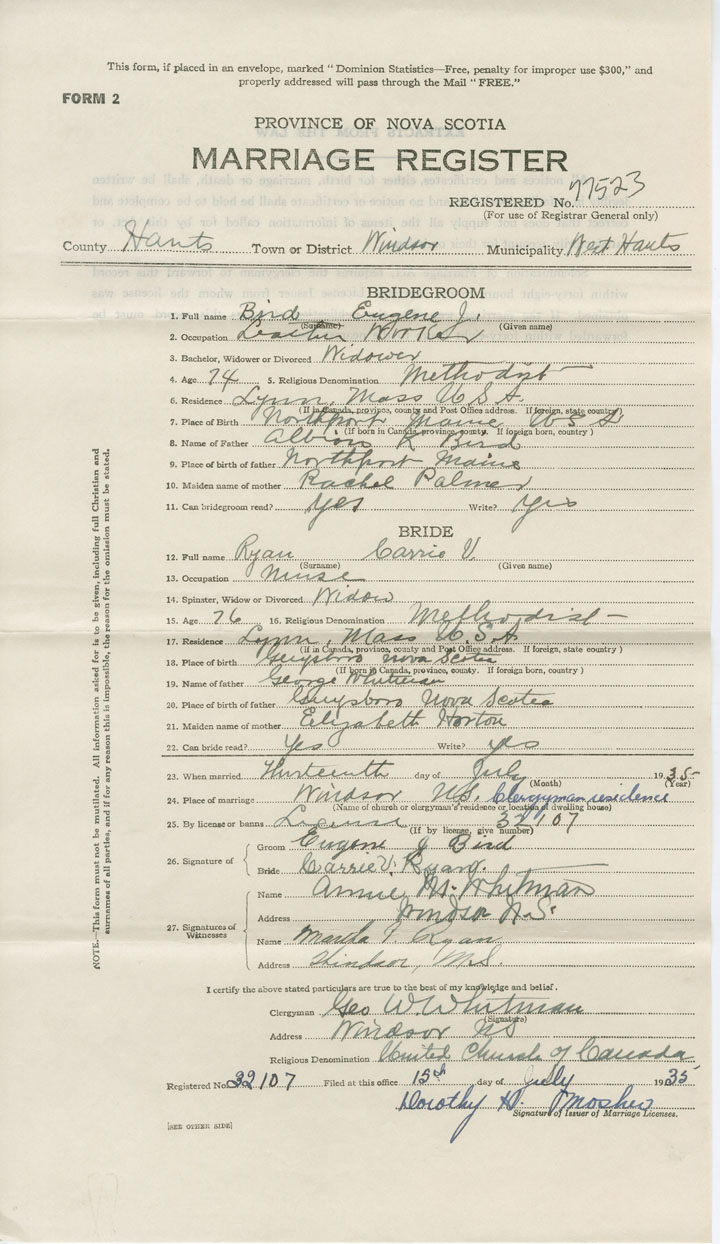 This form, if placed in an envelope, marked "Dominion Statistics—Free, penalty for improper use $300," and
properly addressed will pass through the Mail "FREE."
FORM 2
PROVINCE OF NOVA SCOTIA
MARRIAGE REGISTER
REGISTERED No. 77523
(For use of Registrar General only)
County Hants Town or District Windsor Municipality West Hants
BRIDEGROOM
1. Full name Bird Eugene J.
(Surname) (Given name)
2. Occupation Leather Worker
3. Bachelor, Widower or Divorced Widower
4. Age 74 5. Religious Denomination Methodist
6. Residence Lynn, Mass U.S.A.
(If in Canada, province, county and Post Office address. If foreign, state country)
7. Place of Birth Northport Maine U S A
(If born in Canada, province, county. If foreign born, country)
8. Name of Father Albion K Bird
9. Place of birth of father Northport Maine
10. Maiden name of mother Rachel Palmer
11. Can bridegroom read? Yes Write? Yes
BRIDE
12. Full name Ryan Carrie V.
(Surname) (Given name)
13. Occupation Nurse
14. Spinster, Widow or Divorced Widow
15. Age 76 16. Religious Denomination Methodist
17. Residence Lynn, Mass U.S.A
(If in Canada, province, county and Post Office address. If foreign, state country)
18. Place of birth Guysboro Nova Scotia
(If born in Canada, province, county. If foreign born, country)
19. Name of father George Whitman
20. Place of birth of father Guysboro Nova Scotia
21. Maiden name of mother Elizabeth Horton
22. Can bride read? Yes Write? Yes
23. When married Thirteenth day of July 1935
(Month) (Year)
24. Place of marriage Windsor N.S. Clergyman residence
(Name of church or clergyman's residence or location of dwelling house)
25. By license or banns License 32107
(If by license, give number)
26. Signature of
Groom Eugene J Bird
Bride Carrie V. Ryan
27. Signatures of Witnesses
Name Annie M. Whitman
Address Windsor N.S.
Name Ryan
Address Windsor, N.S.
I certify the above stated particulars are true to the best of my knowledge and belief.
Clergyman Geo W. Whitman
(Signature)
Address Windsor NS
Religious Denomination United Church of Canada
Registered No. 32107 Filed at this office 15th day of July 1935
Dorothy Mosher
Signature of Issuer of Marriage Licenses.
[SEE OTHER SIDE]
NOTE.—This form must not be mutilated. All information asked for is to be given, including full Christian and
surnames of all parties, and if for any reason this is impossible, the reason for the omission must be stated.